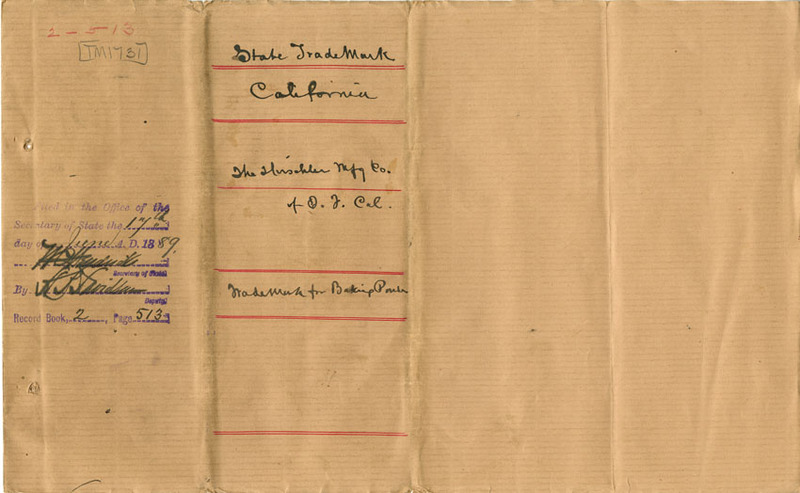 2-513
TM1731
State TradeMark
California
The Hirschler Mfg Co.
of S. F. Cal.
TradeMark for Baking Powder
Filed in the Office of the
Secretary of State the 17th
day of June A. D. 1889.
Secretary of State
By
Deputy
Record Book, 2, Page 513